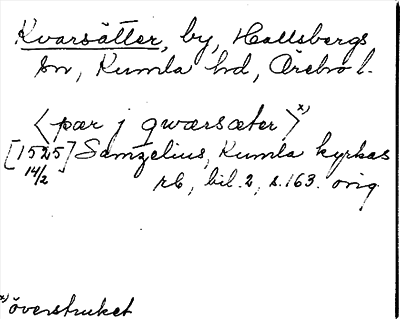 Kvarsätter, by, Hallsbergs
sn, Kumla hd, Örebro l.
<pær j qwærsæter>x)
[1525] Samzelius, Kumla kyrkas
14/2
rb, bil. 2, s. 163. orig
x) överstruket